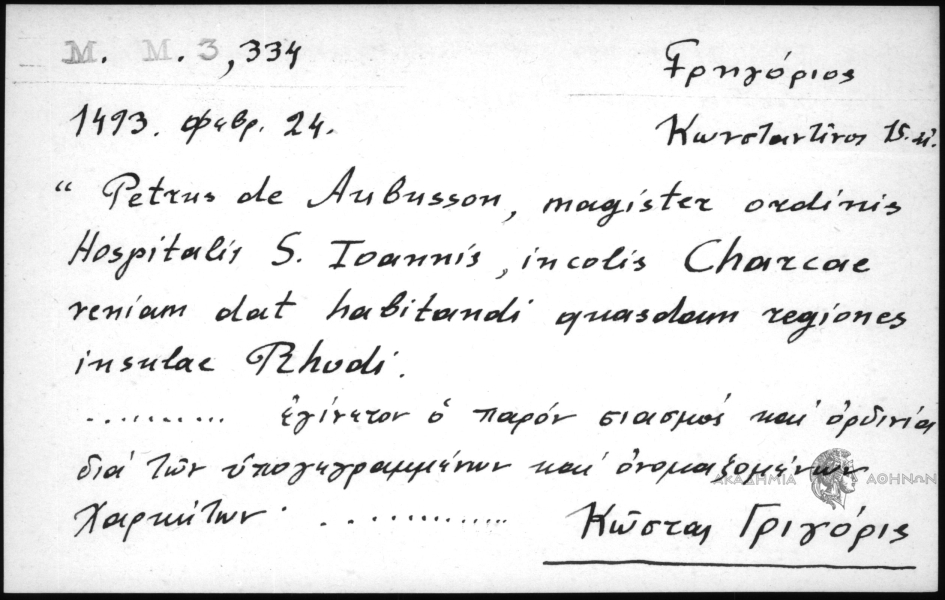 M. M. 3, 334
Γρηγόριος
1493. Φεβρ. 24.
Κωνσταντῖνος 15. αἰ.
“ Petrus de Aubusson, magister ordinis
Hospitalis S. Ioannis, incolis Charcae
veniam dat habitandi quasdam regiones
insulae Rhodi.
.......... ἐγίνετον ὁ παρόν σιασμός καί ὀρδινία
διά τῶν ὑπογεγραμμένων καί ὀνομαζομένων
Χαρκίτων· .............. Κῶστας Γριγόρις
ΑΚΑΔΗΜΙΑ ΑΘΗΝΩΝ